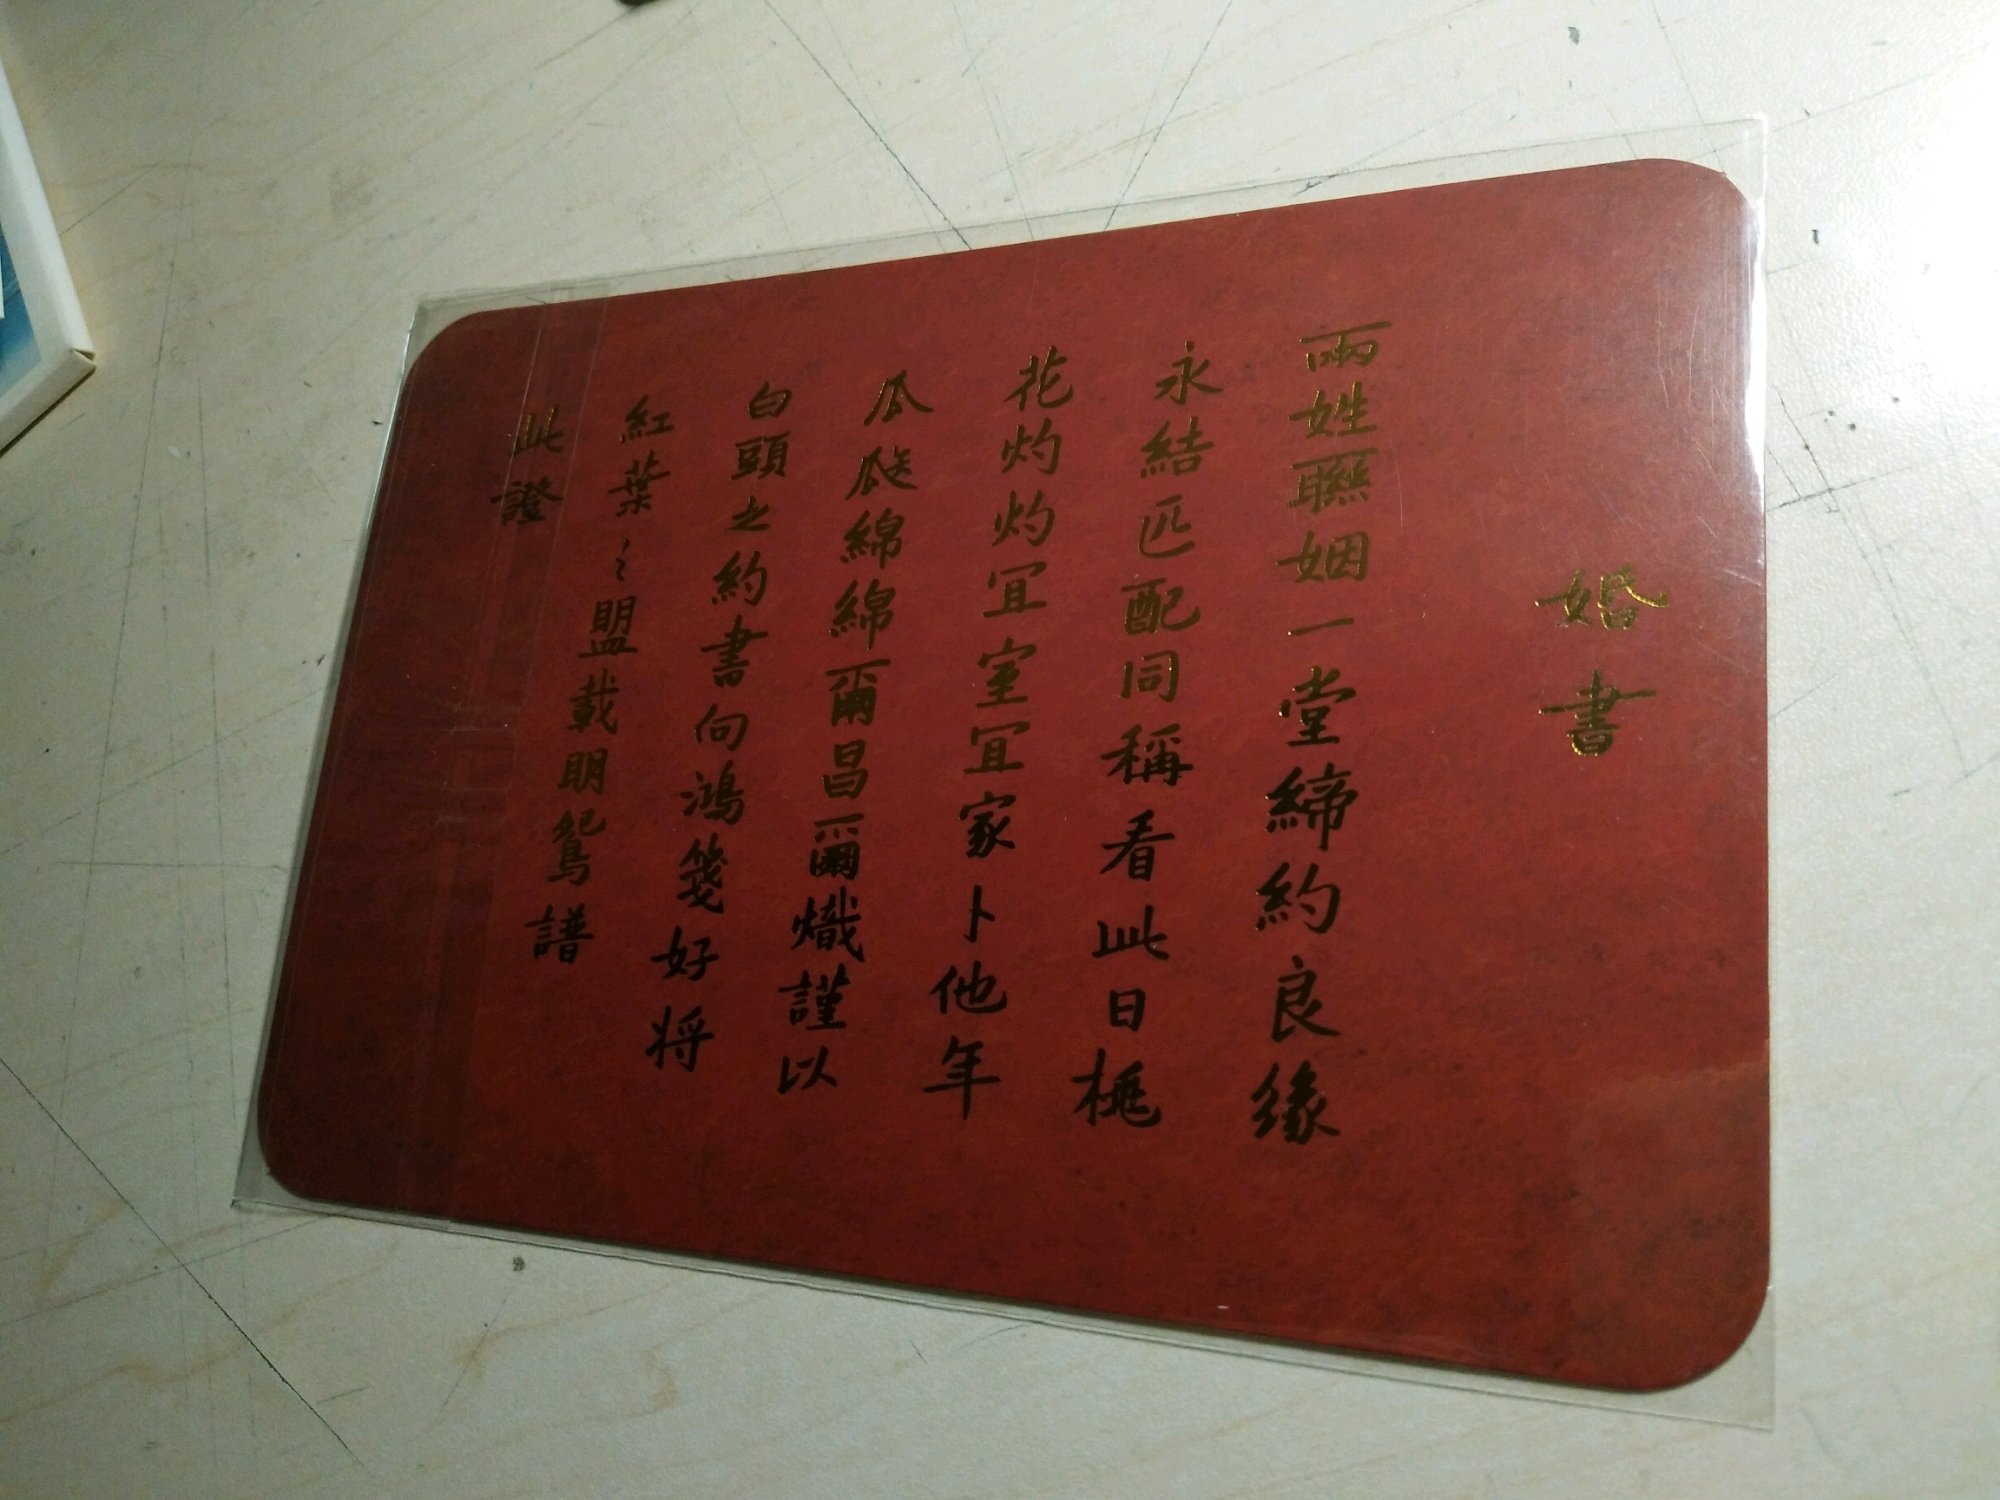 婚書
兩姓聯姻一堂締約良緣
永結匹配同稱看此日桃
花灼灼宜室宜家卜他年
瓜瓞綿綿爾昌爾熾謹以
白頭之約書向鴻箋好將
紅葉之盟載明鴛譜
此證